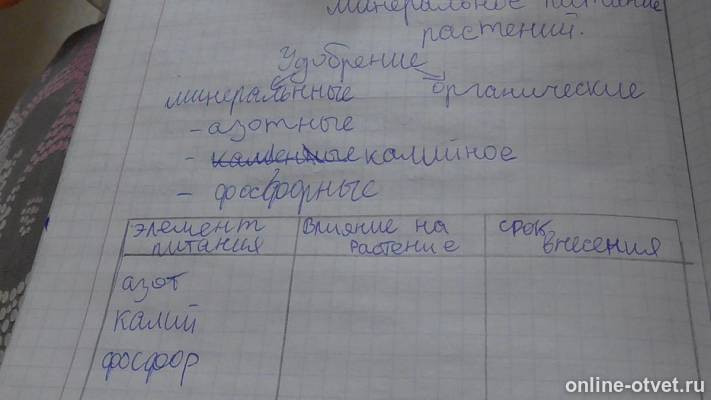 минеральное питание
растений.
Удобрение
минеральные органические
- азотные
- каменные калийное
- фосфорные
элемент питания Влияние на растение срок внесения
азот
калий
фосфор
online-otvet.ru